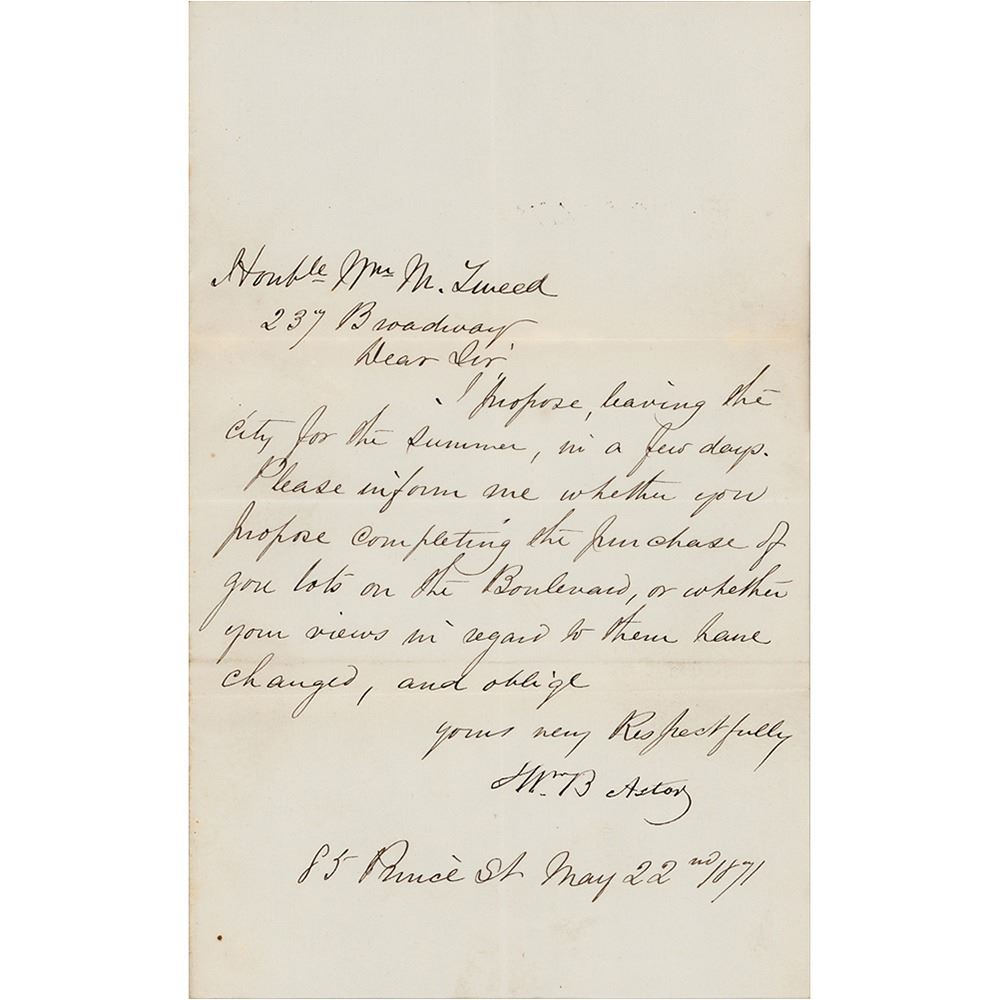 Honble Wm M. Tweed
237 Broadway
Dear Sir
I propose, leaving the
city for the summer, in a few days.
Please inform me whether you
propose completing the purchase of
you lots on the Boulevard, or whether
your views in regard to them have
changed, and oblige
yours very Respectfully
Wm B Astor
85 Prince St May 22nd 1871